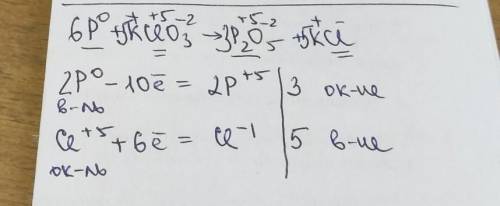 6P⁰ + 5K⁺Cl⁺⁵O₃⁻² → 3P₂⁺⁵O₅⁻² + 5K⁺Cl⁻
2P⁰ - 10ē = 2P⁺⁵ | 3 ок-ие
в-ль
Cl⁺⁵ + 6ē = Cl⁻¹ | 5 в-ие
ок-ль